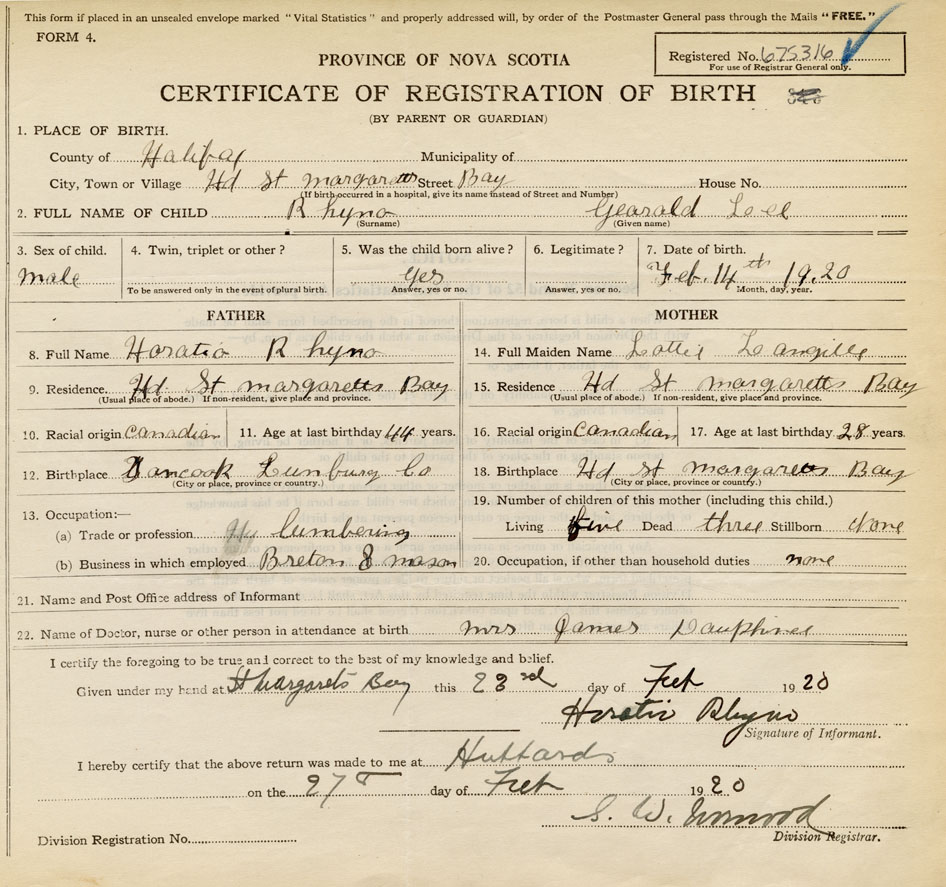 This form if placed in an unsealed envelope marked "Vital Statistics" and properly addressed will, by order of the Postmaster General pass through the Mails "FREE."
FORM 4.
Registered No. 675316
For use of Registrar General only.
PROVINCE OF NOVA SCOTIA
CERTIFICATE OF REGISTRATION OF BIRTH
(BY PARENT OR GUARDIAN)
1. PLACE OF BIRTH.
County of Halifax Municipality of
City, Town or Village Hd St margaretts Street Bay House No.
(If birth occurred in a hospital, give its name instead of Street and Number)
2. FULL NAME OF CHILD Rhyno Gearald Lee
(Surname) (Given name)
3. Sex of child. 4. Twin, triplet or other? 5. Was the child born alive? 6. Legitimate? 7. Date of birth.
male yes Feb. 14th 1920
To be answered only in the event of plural birth. Answer, yes or no. Answer, yes or no. Month, day, year.
FATHER MOTHER
8. Full Name Horatio Rhyno 14. Full Maiden Name Lottie Langille
9. Residence Hd St margaretts Bay 15. Residence Hd St margaretts Bay
(Usual place of abode.) If non-resident, give place and province. (Usual place of abode.) If non-resident, give place and province.
10. Racial origin Canadian 11. Age at last birthday 44 years. 16. Racial origin Canadian 17. Age at last birthday 28 years.
12. Birthplace Tancook Lunburg Co 18. Birthplace Hd St margaretts Bay
(City or place, province or country.) (City or place, province or country.)
19. Number of children of this mother (including this child.)
13. Occupation:—
Living five Dead three Stillborn None
(a) Trade or profession lumbering
(b) Business in which employed Breton & mason 20. Occupation, if other than household duties none
21. Name and Post Office address of Informant
22. Name of Doctor, nurse or other person in attendance at birth mrs James Dauphinee
I certify the foregoing to be true and correct to the best of my knowledge and belief.
Given under my hand at St Margarets Bay this 23rd day of Feb 1920
Horatio Rhyno
Signature of Informant.
I hereby certify that the above return was made to me at Hubbards
on the 27 day of Feb 1920
S. W.
Division Registration No. Division Registrar.